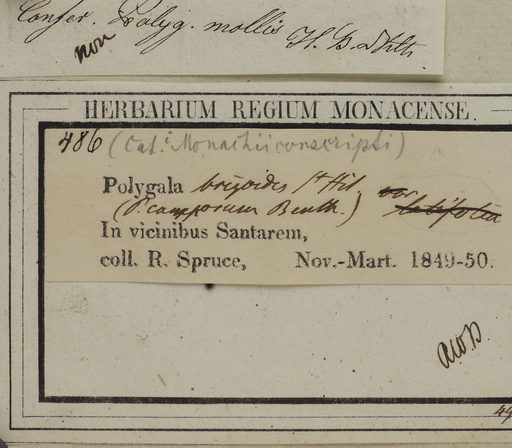 Confer. Polyg. mollis H. B. & Kth.
non
HERBARIUM REGIUM MONACENSE.
486 (Cat. Monachii conscripti)
Polygala brizoides St Hil. var
(P. camporum Benth.) latifolia
In vicinibus Santarem,
coll. R. Spruce, Nov.-Mart. 1849-50.
49